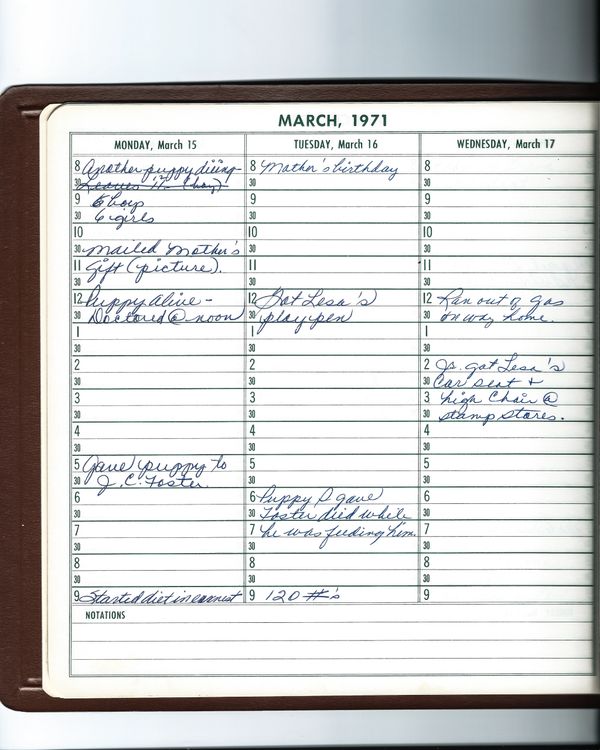 MARCH, 1971
MONDAY, March 15
8 Another puppy dieing
30 Leaves 11 (boy)
9 5 boys
30 6 girls
10
30 mailed Mother's
11 gift (picture).
30
12 Puppy alive -
30 Doctored @ noon
1
30
2
30
3
30
4
30
5 Gave puppy to
30 J.C. Foster.
6
30
7
30
8
30
9 Started diet in earnest
TUESDAY, March 16
8 Mother's birthday
30
9
30
10
30
11
30
12 Got Lesa's
30 play pen
1
30
2
30
3
30
4
30
5
30
6 Puppy I gave
30 Foster died while
7 he was feeding him.
30
8
30
9 120 #'s
WEDNESDAY, March 17
8
30
9
30
10
30
11
30
12 Ran out of gas
30 on way home.
1
30
2 Jr. got Lesa's
30 Car seat +
3 high Chair @
30 stamp stores.
4
30
5
30
6
30
7
30
8
30
9
NOTATIONS